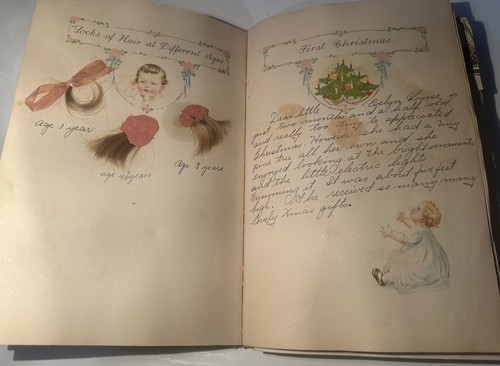 Locks of Hair at Different Ages
Age 1 year
age 4½ years
Age 3 years
First Christmas
Dear little Evelyn Louise is
just two months and a half old
and really too tiny to appreciated
Christmas. However she had a tiny
pine tree all her own and she
enjoyed looking at the bright ornaments
and the little electric lights
trymming it. It was about five feet
high. She received so many many
lovely Xmas gifts.